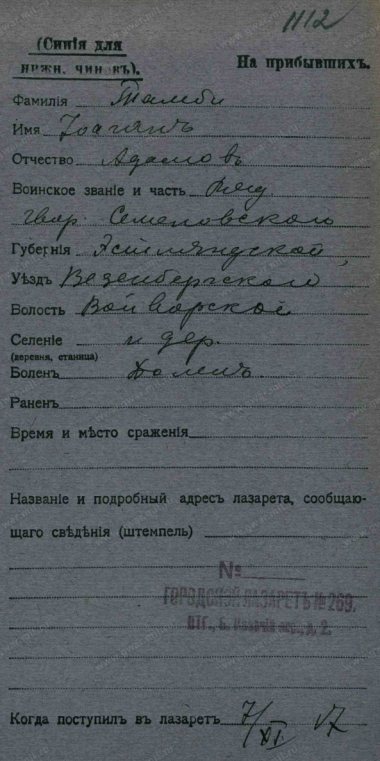 1112
(Синія для
нижн. чиновъ).
На прибывшихъ.
Фамилія Тамби
Имя Іоганъ
Отчество Адамовъ
Воинское званіе и часть Ряд.
гвар. Семеновскаго
Губернія Эстляндской,
Уѣздъ Везенбергскаго
Волость Войворской
Селеніе и дер.
(деревня, станица)
Боленъ Боленъ.
Раненъ
Время и мѣсто сраженія
Названіе и подробный адресъ лазарета, сообщаю-
щаго свѣдѣнія (штемпель)
№
ГОРОДСКОЙ ЛАЗАРЕТЪ № 269.
ПТГ., Б. Казачій пер., д. 2.
Когда поступилъ въ лазаретъ 7/XI 17